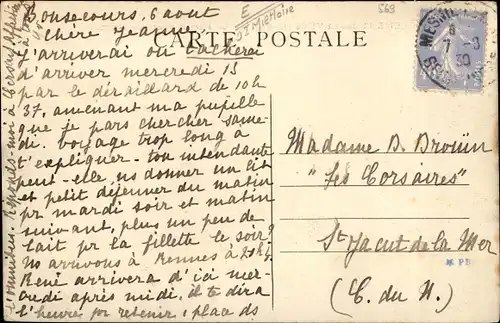 Bonsecours, 6 aout
Chère Jeanne
J'arriverai ou tâcherai
d'arriver mercredi 13
par le déraillard de 10h
37, amenant ma pupille
que je pars chercher same-
di. Voyage trop long à
t'expliquer - ton intendante
peut-elle ns donner un lit
et petit déjeuner du matin
pr mardi soir et matin
suivant, plus un peu de
lait pr la fillette le soir?
Ns arrivons à Rennes à
René arrivera d'ici mer-
credi après midi, il te dira
l'heure pr retenir places ds
l'omnibus. Réponds-moi à
E
St Miettoire
CARTE POSTALE
569
MESNIL
8
7 -8
30
Madame B. Broüin
"Les Corsaires"
St Jacut de la Mer
* PB
(C. du N.)